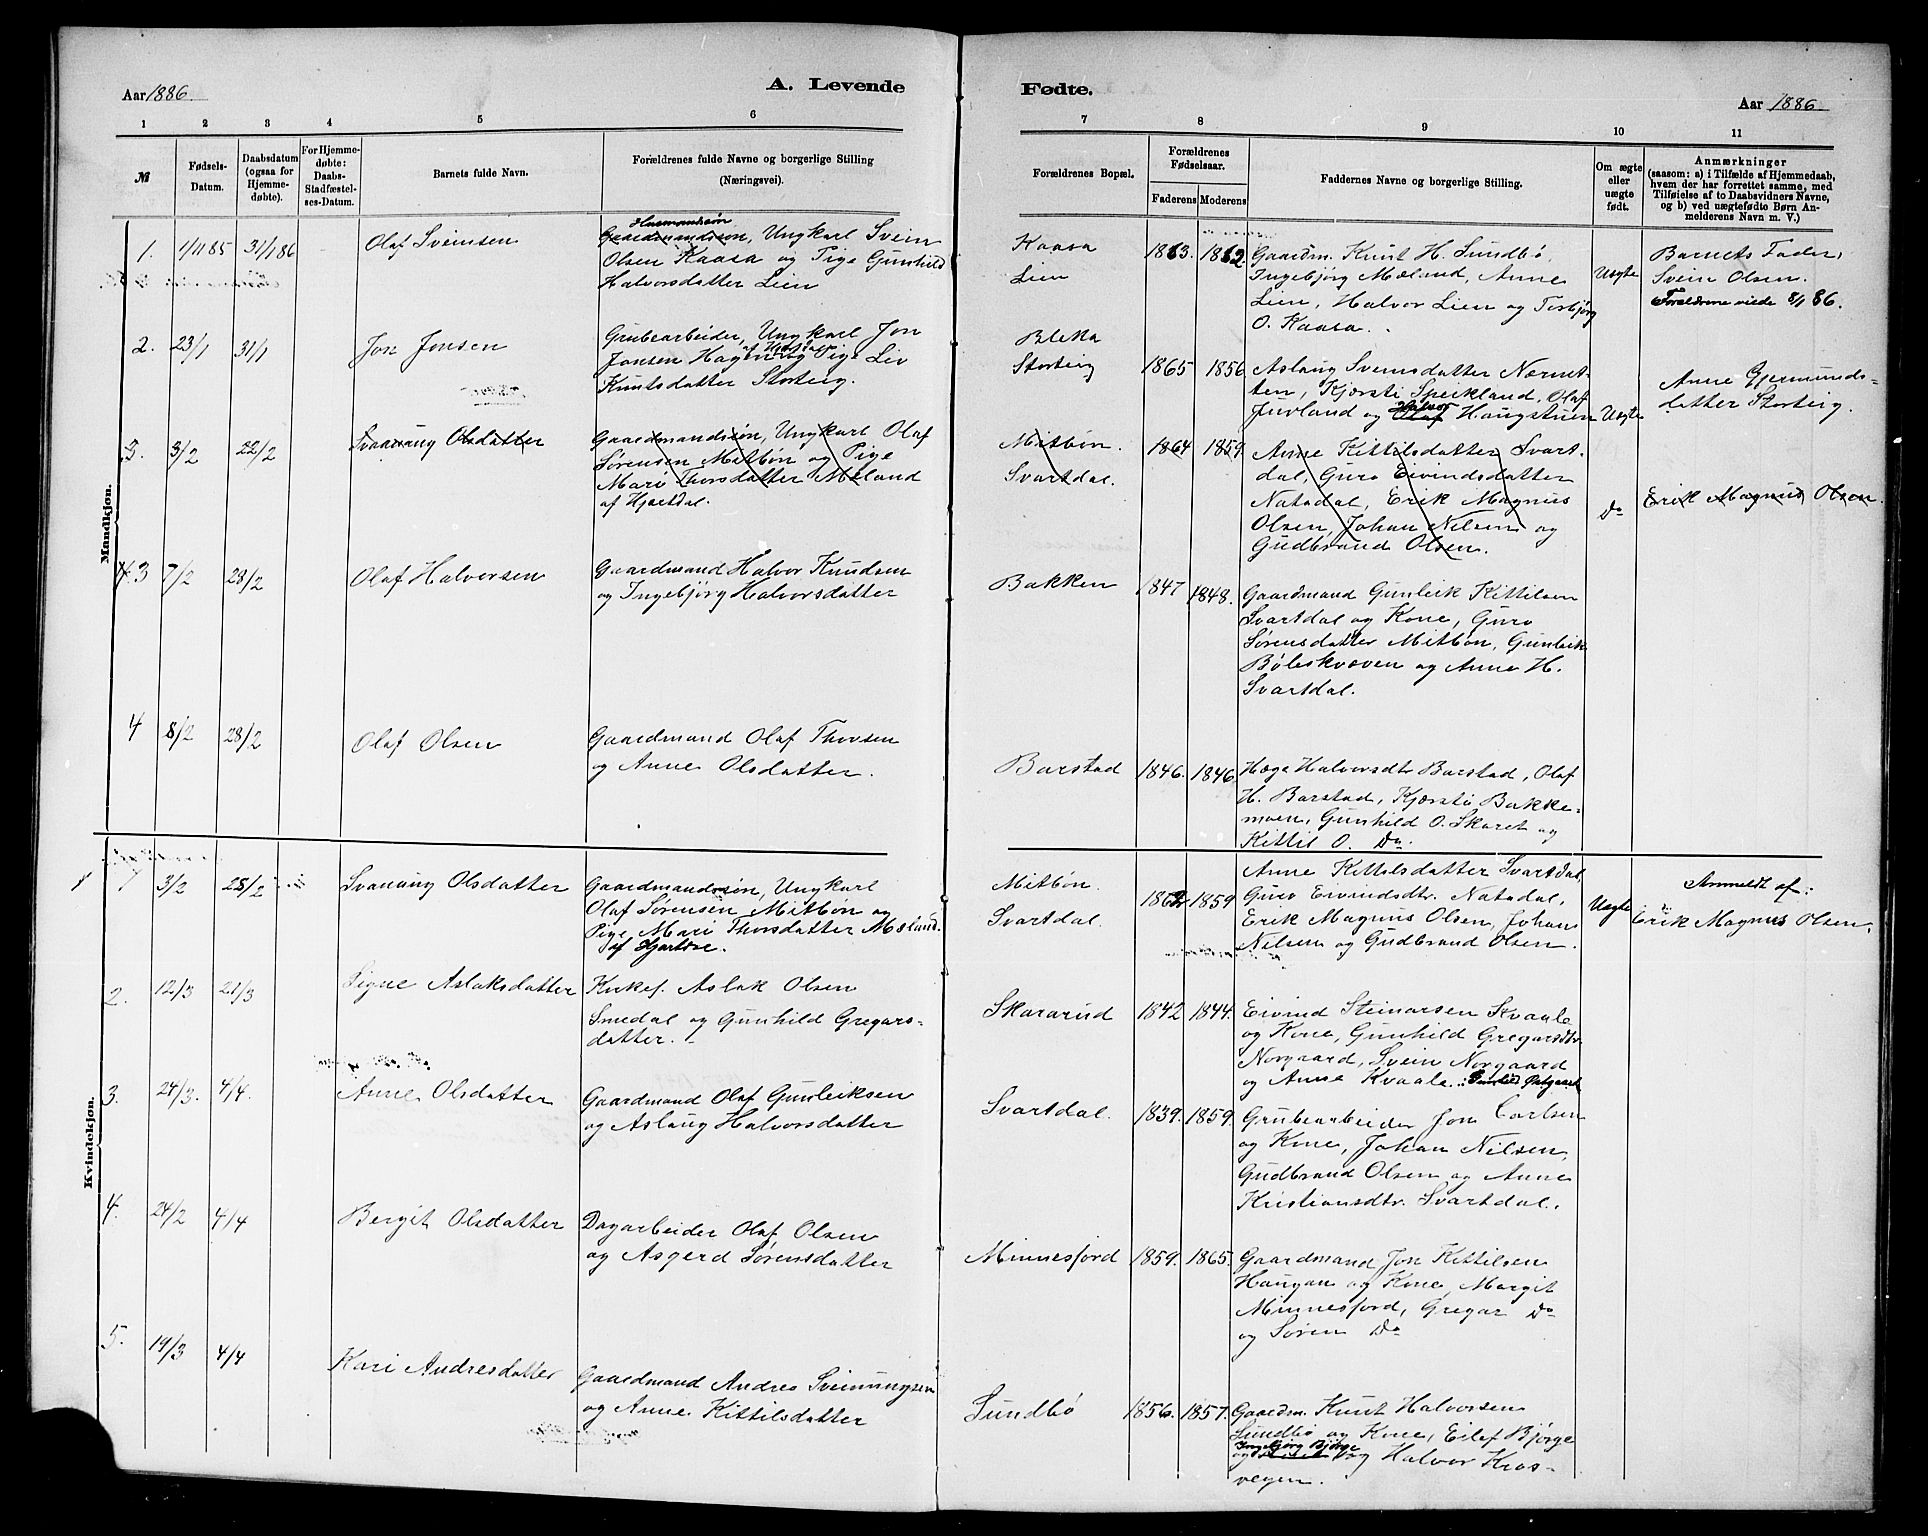 Aar 1886.
A. Levende
1 2 3 4 5 6
№
Fødsels-
Datum.
Daabsdatum
(ogsaa for
Hjemme-
døbte).
For Hjemme-
døbte:
Daabs-
Stadfæstel-
ses-Datum.
Barnets fulde Navn.
Forældrenes fulde Navne og borgerlige Stilling
(Næringsvei).
Mandkjøn.
Husmandssøn
1. 1/11 85 31/1 86 Olaf Sveinsen Gaardmandssøn, Ungkarl Svein
Olsen Kaasa og Pige Gunhild
Halvorsdatter Lien
2. 23/1 31/1 Jon Jonsen Grubearbeider, Ungkarl Jon
Jonsen Hagen af Hjartdal og Pige Liv
Knutsdatter Storteig.
3. 3/2 22/2 Svanaug Olsdatter Gaardmandssøn, Ungkarl Olaf
Sørensen Mitbøn og Pige
Mari Thorsdatter Mæland
af Hjartdal.
4. 3 7/2 28/2 Olaf Halvorsen Gaardmand Halvor Knudsen
og Ingebjørg Halvorsdatter
4 8/2 28/2 Olaf Olsen Gaardmand Olaf Thovsen
og Anne Olsdatter.
Kvindekjøn.
1 3/2 28/2 Svanaug Olsdatter Gaardmandssøn, Ungkarl
Olaf Sørensen Mitbøn og
Pige Mari Thorsdatter Mæland.
af Hjartdal.
2. 12/3 21/3 Signe Aslaksdatter Kirkes. Aslak Olsen
Smedal og Gunhild Gregars-
datter.
3. 24/3. 4/4. Anne Olsdatter Gaardmand Olaf Gunleiksen
og Aslaug Halvorsdatter
4. 24/2 4/4 Bergit Olsdatter Dagarbeider Olaf Olsen
og Asgerd Sørensdatter
5. 19/3 4/4 Kari Andresdatter Gaardmand Andres Sveinungsen
og Anne Kittilsdatter
Fødte.
Aar 1886
7 8 9 10 11
Forældrenes Bopæl.
Forældrenes
Fødselsaar.
Faderens Moderens
Faddernes Navne og borgerlige Stilling.
Om ægte
eller
uægte
født.
Anmærkninger
(saasom: a) i Tilfælde af Hjemmedaab,
hvem der har forrettet samme, med
Tilføielse af to Daabsvidners Navne,
og b) ved uægtefødte Børn An-
melderens Navn m. V.)
Kaasa 1863. 1862. Gaardm. Knut H. Sundbø, Barnets Fader,
Lien Ingebjørg Mæland, Anne Uægte Svein Olsen.
Lien, Halvor Lien og Torbjørg Forældrene viede 8/1 86.
O. Kaasa.
Bleka
Storteig 1865 1856 Aslaug Sveinsdatter Nærnet-
ten, Kjærsti Speikland, Olaf Anne Gjermunds-
Juvland og Olaf Halvor Haugstuen Uægte datter Storteig.
Mitbøn. 1864 1859. Anne Kittilsdatter Svart-
Svartdal. dal, Guro Eivindsdatter
Natadal, Erik Magnus Do Erik Magnus Olsen.
Olsen, Johan Nilsen og
Gudbrand Olsen.
Bakken 1847 1848. Gaardmand Gunleik Kittilsen
Svartdal og Kone, Guro
Sørensdatter Mitbøn, Gunleik
Bøleskvæven og Anne H.
Svartdal.
Barstad 1846. 1846. Hæge Halvorsdtr Barstad, Olaf
H. Barstad, Kjærsti Bakke-
moen, Gunhild O. Skaret og
Kittil O. Do.
Mitbøn. Anne Kittilsdatter Svartdal, Anmeldt af:
Svartdal. 1862 1859 Guro Eivindsdtr. Natadal, Uægte Erik Magnus Olsen.
Erik Magnus Olsen, Johan
Nilsen og Gudbrand Olsen.
Skararud 1842 1844. Eivind Steinarsen Kvaale
og Kone, Gunhild Gregarsdtr.
Norgaard, Svein Norgaard
og Anne Kvaale.
Svartdal. 1839. 1859. Grubearbeider Jon Carlsen
og Kone, Johan Nilsen,
Gudbrand Olsen og Anne
Kristiansdtr. Svartdal.
Minnesjord 1859. 1865. Gaardmand Jon Kittilsen
Haugan og Kone, Margit
Minnesjord, Gregar Do
og Søren Do
Sundbø 1856. 1857. Gaardm. Knut Halvorsen
Sundbø og Kone, Eilef Bjørge
Ingebjørg Bjørge
og Halvor Kros-
vegen.